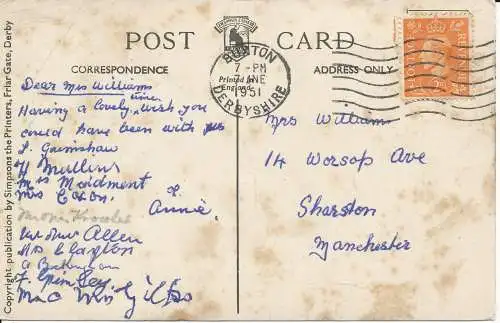 POST CARD
CORRESPONDENCE
ADDRESS ONLY
Printed in
England
BUXTON
7 - PM
JNE
1951
DERBYSHIRE
Dear Mrs Williams
Having a lovely time, wish you
could have been with us
L. Grimshaw
H Mullins
Mrs Maidment
Mrs
& Annie.
Allen
Mrs Clayton
Mrs Williams
14 Worsop Ave
Sharston
Manchester
Copyright publication by Simpsons the Printers, Friar Gate, Derby